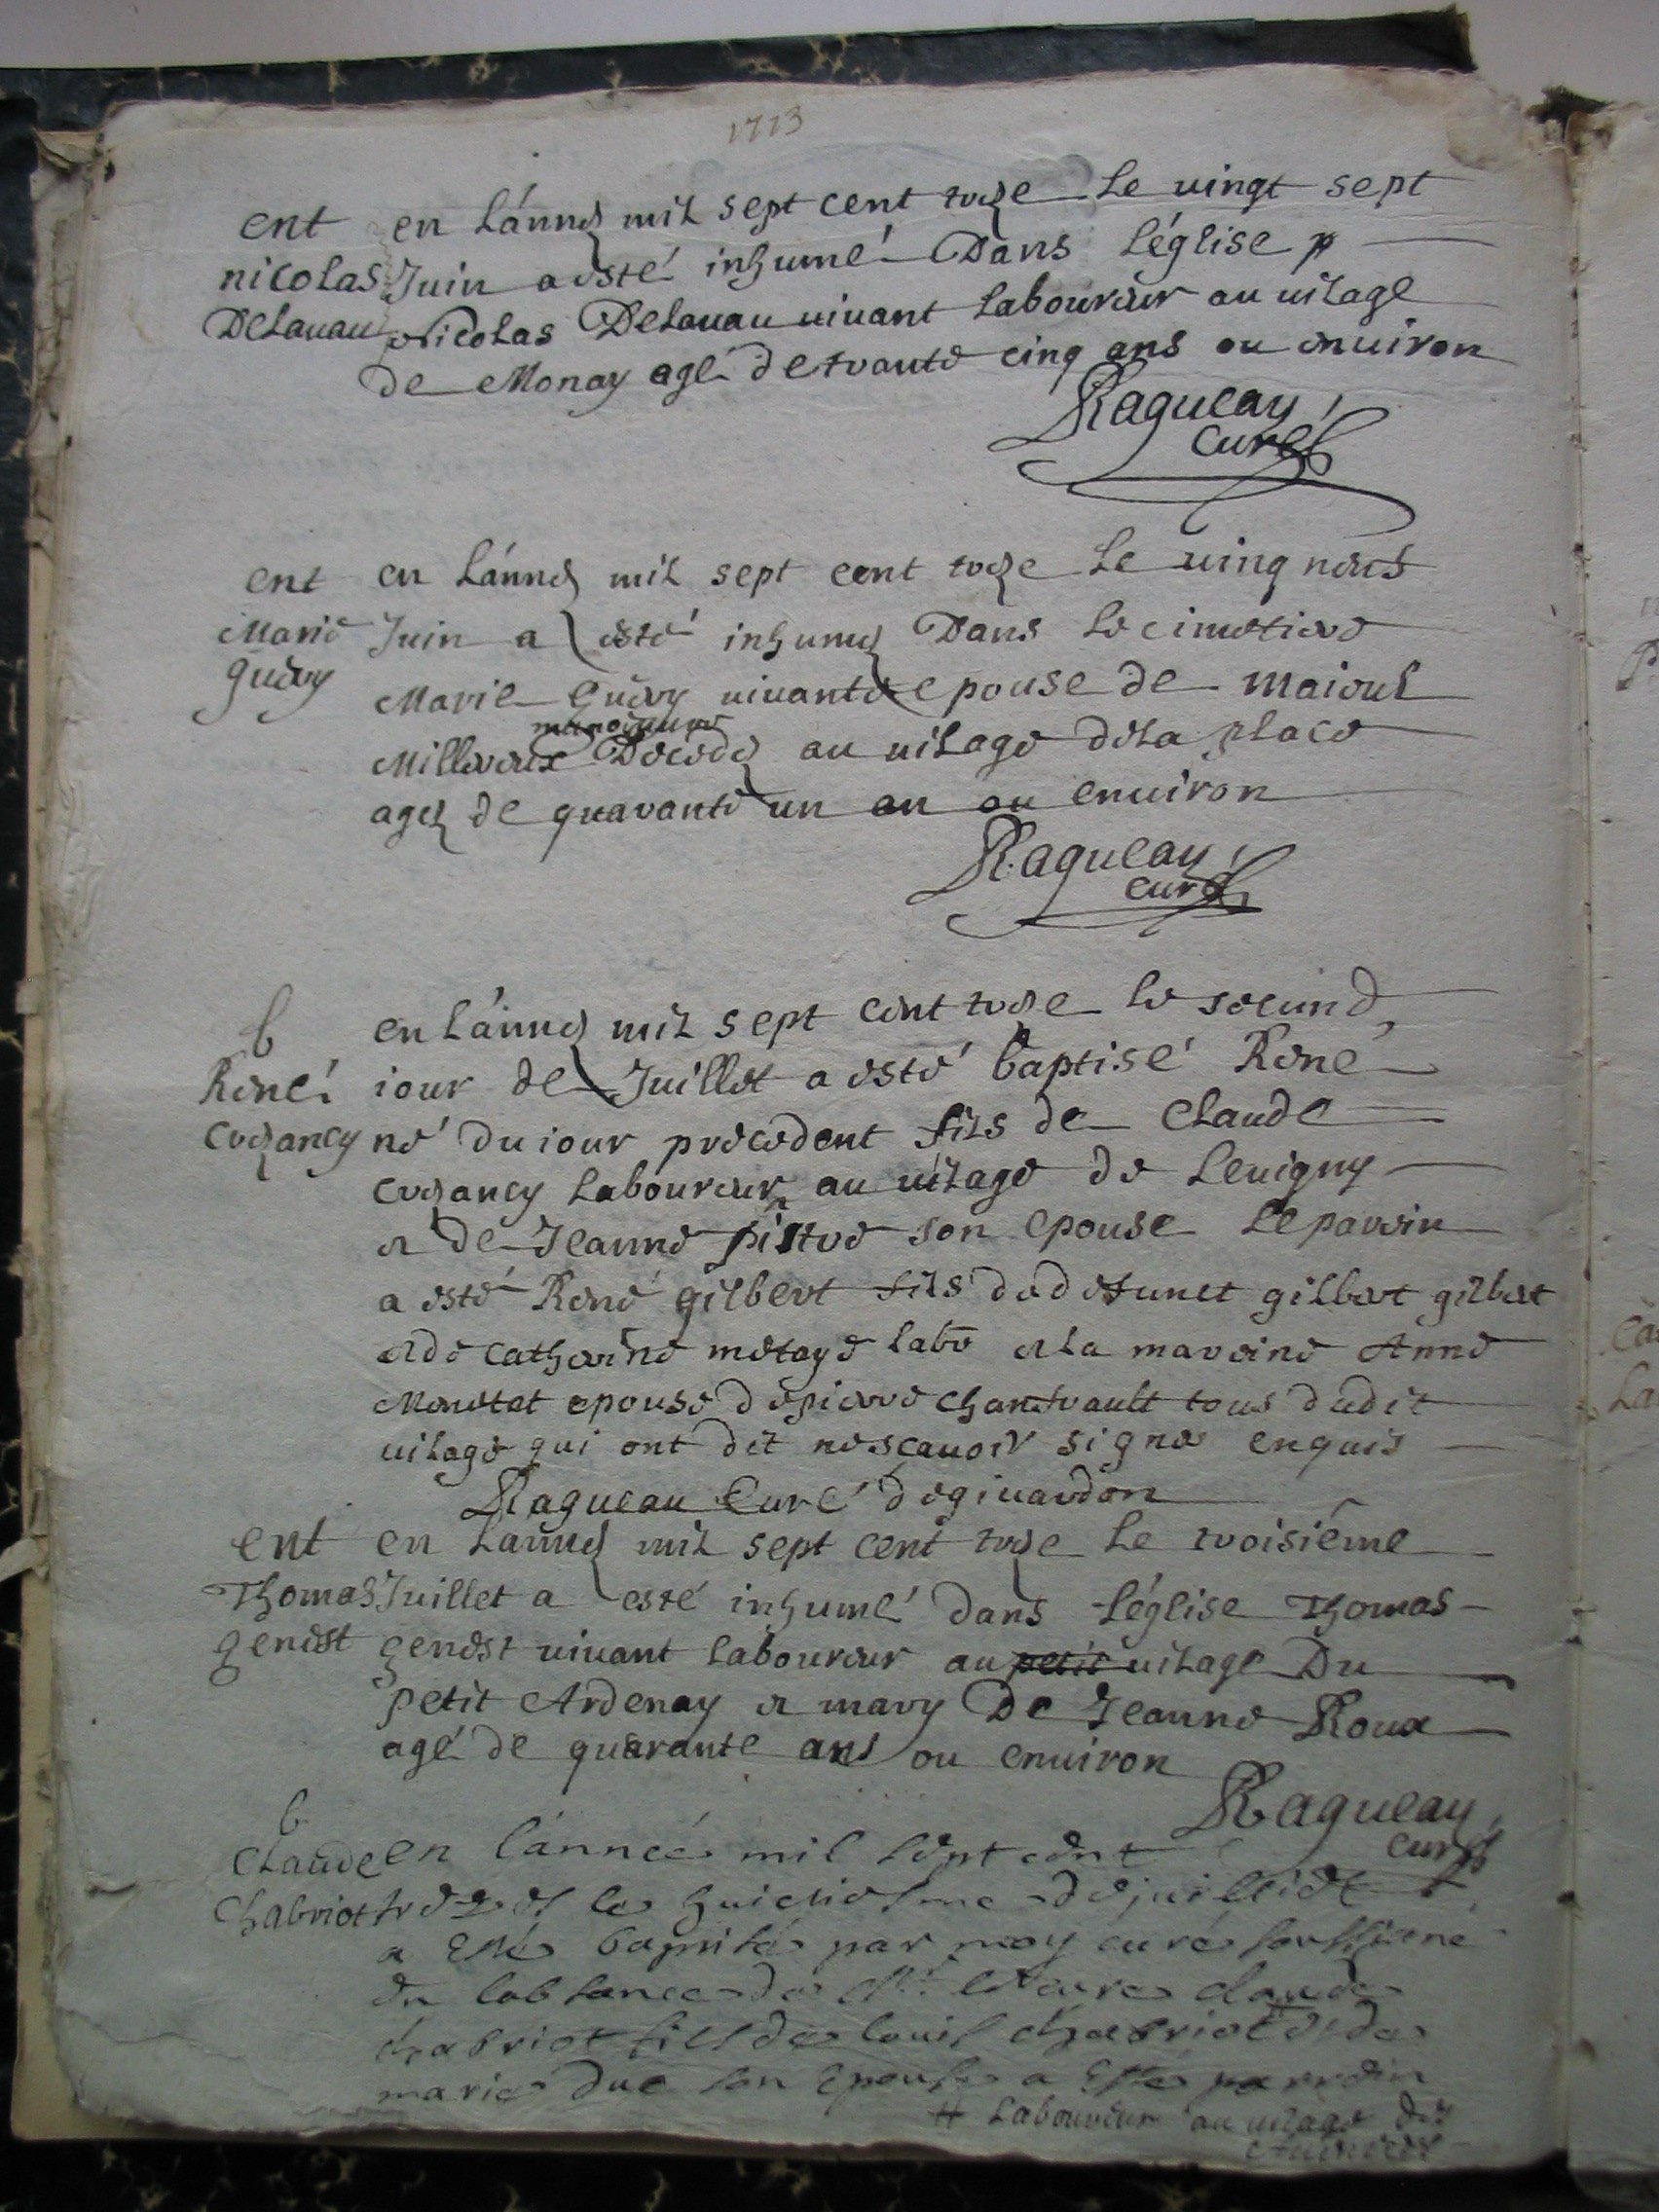 1713
ent
nicolas
Delauau
en L'année mil sept cent treze Le uingt sept
Juin a esté inhumé Dans L'église p
Nicolas Delauau uiuant Laboureur au uilage
de Monay agé de trante cinq ans ou enuiron
Ragueau
curé
ent
Marie
guéry
en L'année mil sept cent treze Le uing neuf
Juin a esté inhumée Dans Le cimetiere
Marie Guéry uiuante epouse de maioul
manoeuure
Millereux Decedée au uilage de La place
agée de quarante un an ou enuiron
Ragueau
curé
b
René
crezancy
en L'année mil sept cent treze Le secund
iour de Juillet a esté baptisé René
né du iour precedent fils de Claude
crezancy Laboureur au uilage de Leuigny
et de Jeanne pistre son epouse Le parein
a esté René gilbert fils de defunct gilbert gilbert
et de catherine metaye labr et La mareine Anne
epouse de pierre chantrault tous dudit
uilage qui ont dit ne sçauoir signer enquis
Ragueau Curé de giuardon
ent
Thomas
genest
en L'année mil sept cent treze Le troisiéme
Juillet a esté inhumé dans L'église Thomas
genest uiuant Laboureur au petit uilage Du
petit Ardenay et mary De Jeanne Roux
agé de quarante ans ou enuiron
Ragueau
curé
b
Claude
Chabriot
en l'année mil sept cent
treze le huictiesme de juilliet
a esté baptisé par moy curé soussigné
en l'absence de Mr le curé claude
chabriot fils de louis chabriot # et de
marie duc son epouse a esté parrein
# Laboureur au uilage des